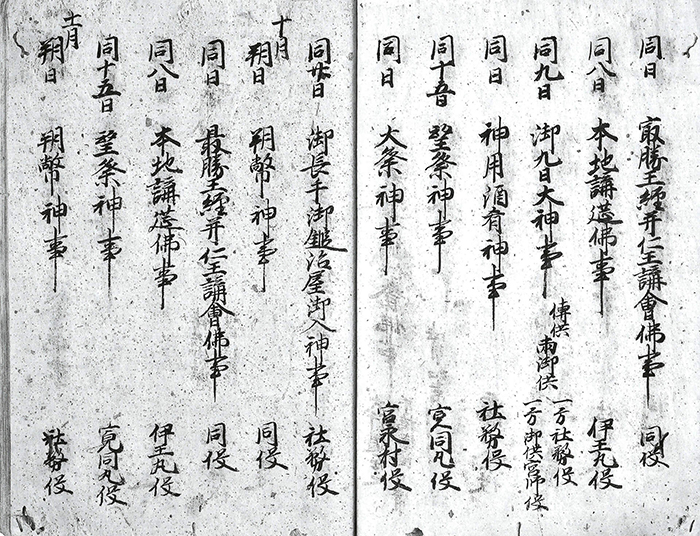 同日 最勝王經并仁王講會佛事 同役
同八日 本地講造佛事 伊王丸役
同九日 御九日大神事 傳供 両御供 一方社務役 一方御供宮师役
同日 神用酒肴神事 社務役
同十五日 望祭神事 寛同丸役
同日 大祭神事 宮永村役
同廿日 御長手御鎚治屋御入神事 社務役
十月
朔日 朔幣神事 同役
同日 最勝王經并仁王講會佛事 同役
同八日 本地講造佛事 伊王丸役
同十五日 望祭神事 寛同丸役
十一月
朔日 朔幣神事 社務役